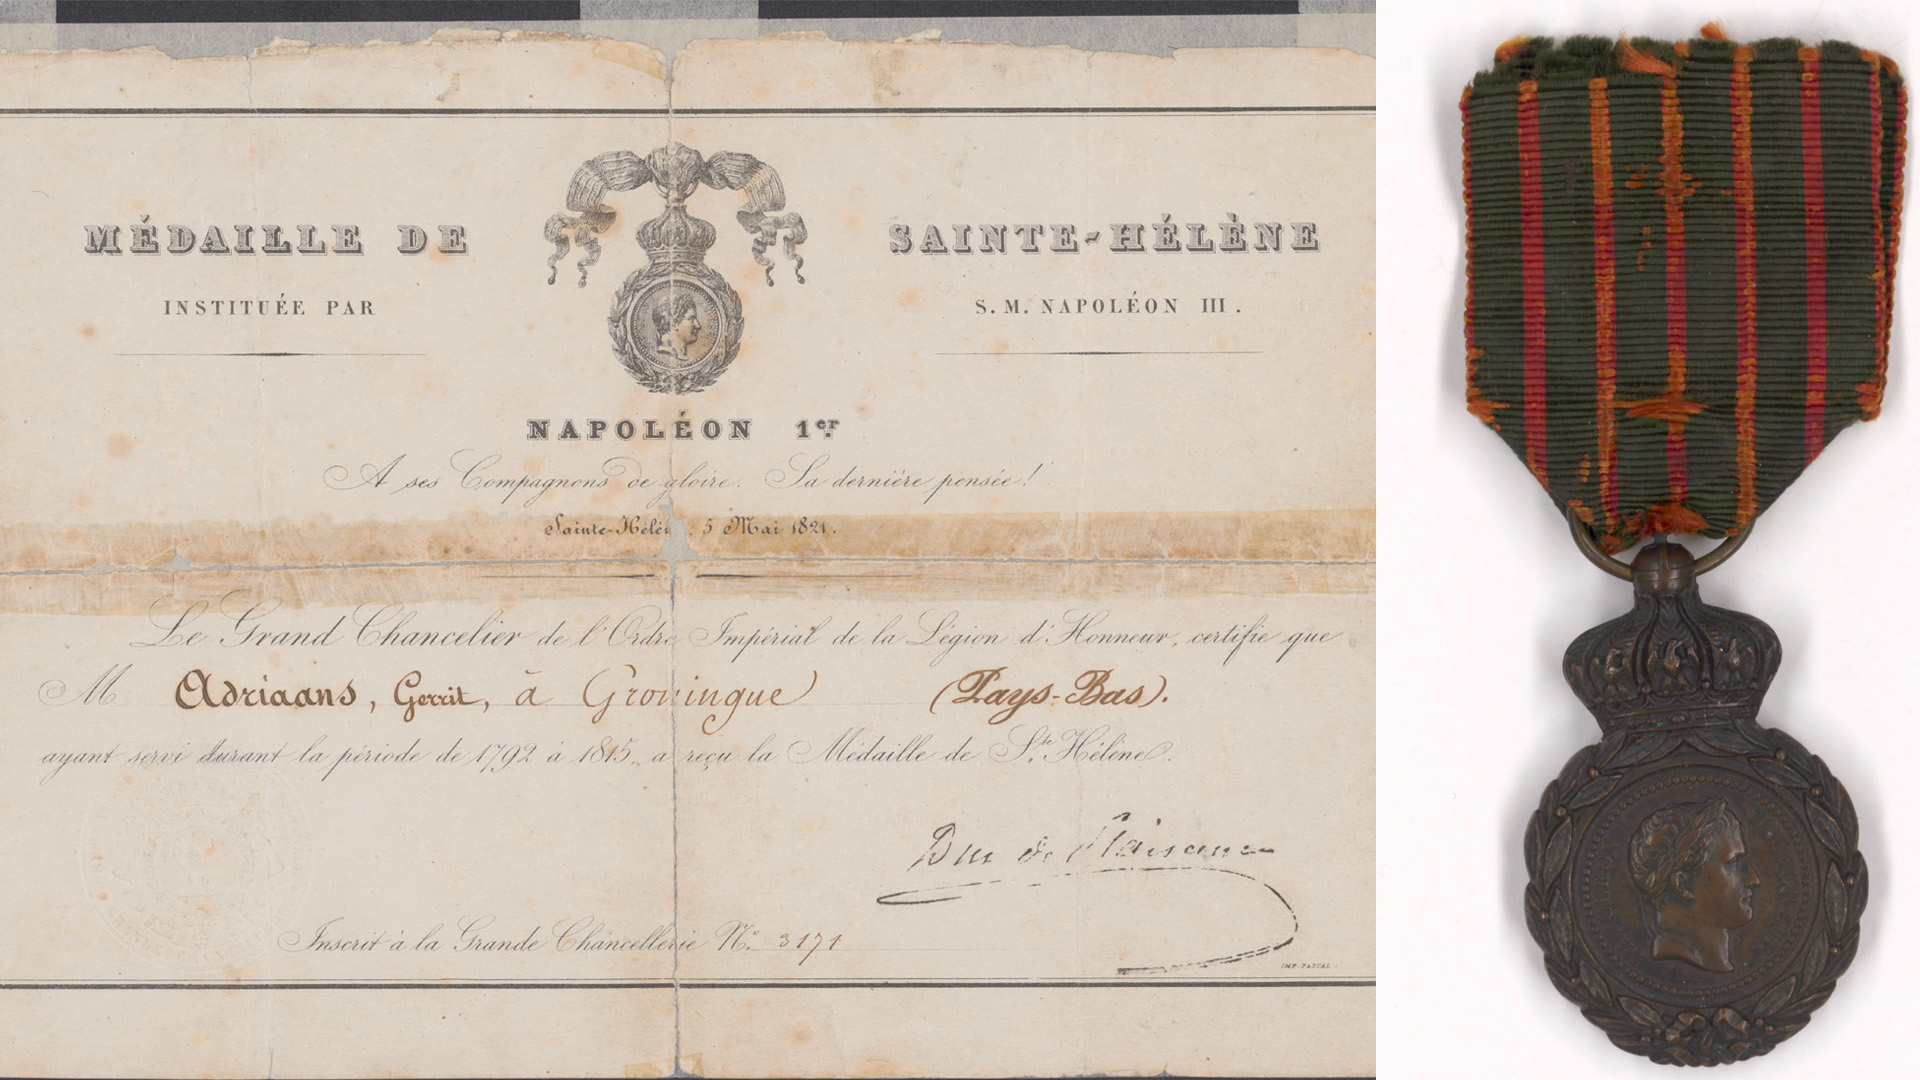 MÉDAILLE DE SAINTE-HÉLÈNE
INSTITUÉE PAR S. M. NAPOLÉON III.
NAPOLÉON 1er.
A ses Compagnons de gloire. Sa dernière pensée!
Sainte-Hélèn 5 Mai 1821.
Le Grand Chancelier de l'Ordre Impérial de la Légion d'Honneur, certifie que
M Adriaans, Gerrit, à Groningue (Pays-Bas).
ayant servi durant la période de 1792 à 1815, a reçu la Médaille de Ste Hélène.
Duc de Plaisance
Inscrit à la Grande Chancellerie No. 3171
IMP. PASCAL